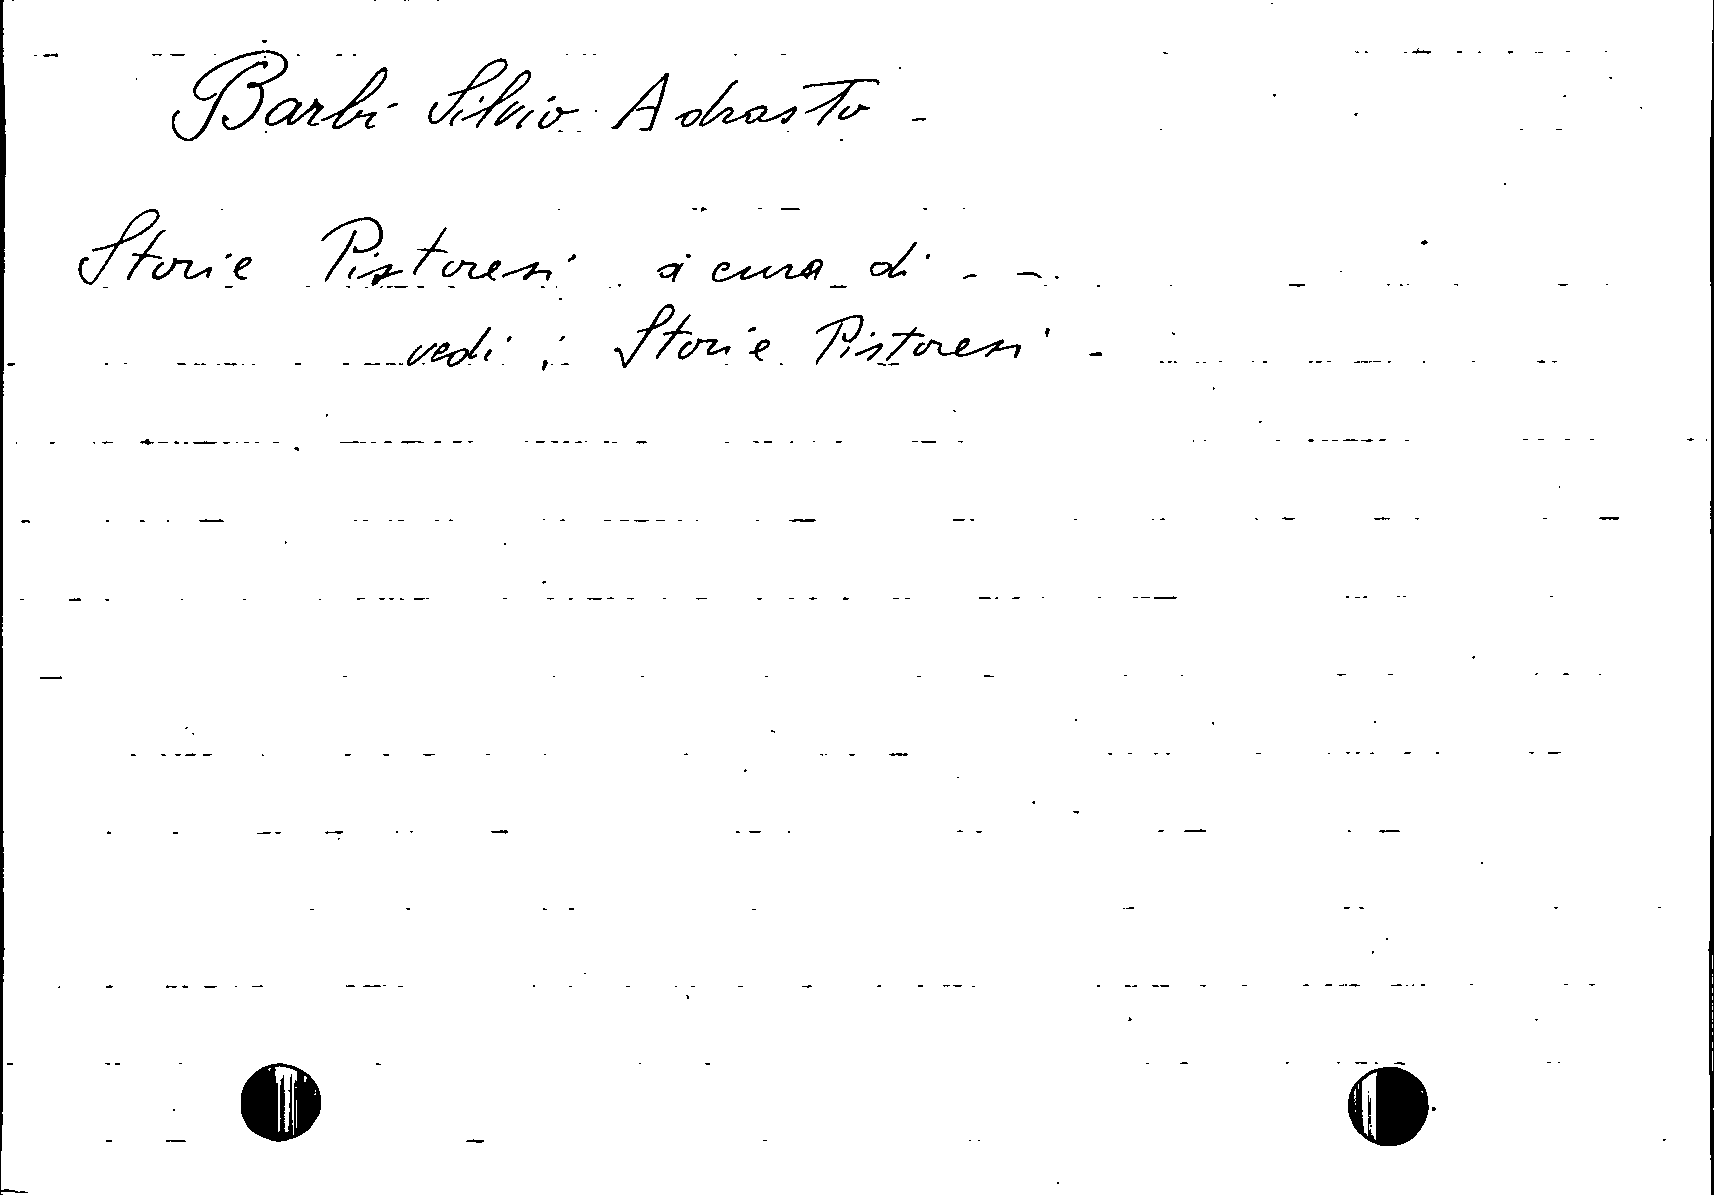 Barbi Silvio Adrasto -
Storie Pistoresi a cura di - -.
vedi : Storie Pistoresi -